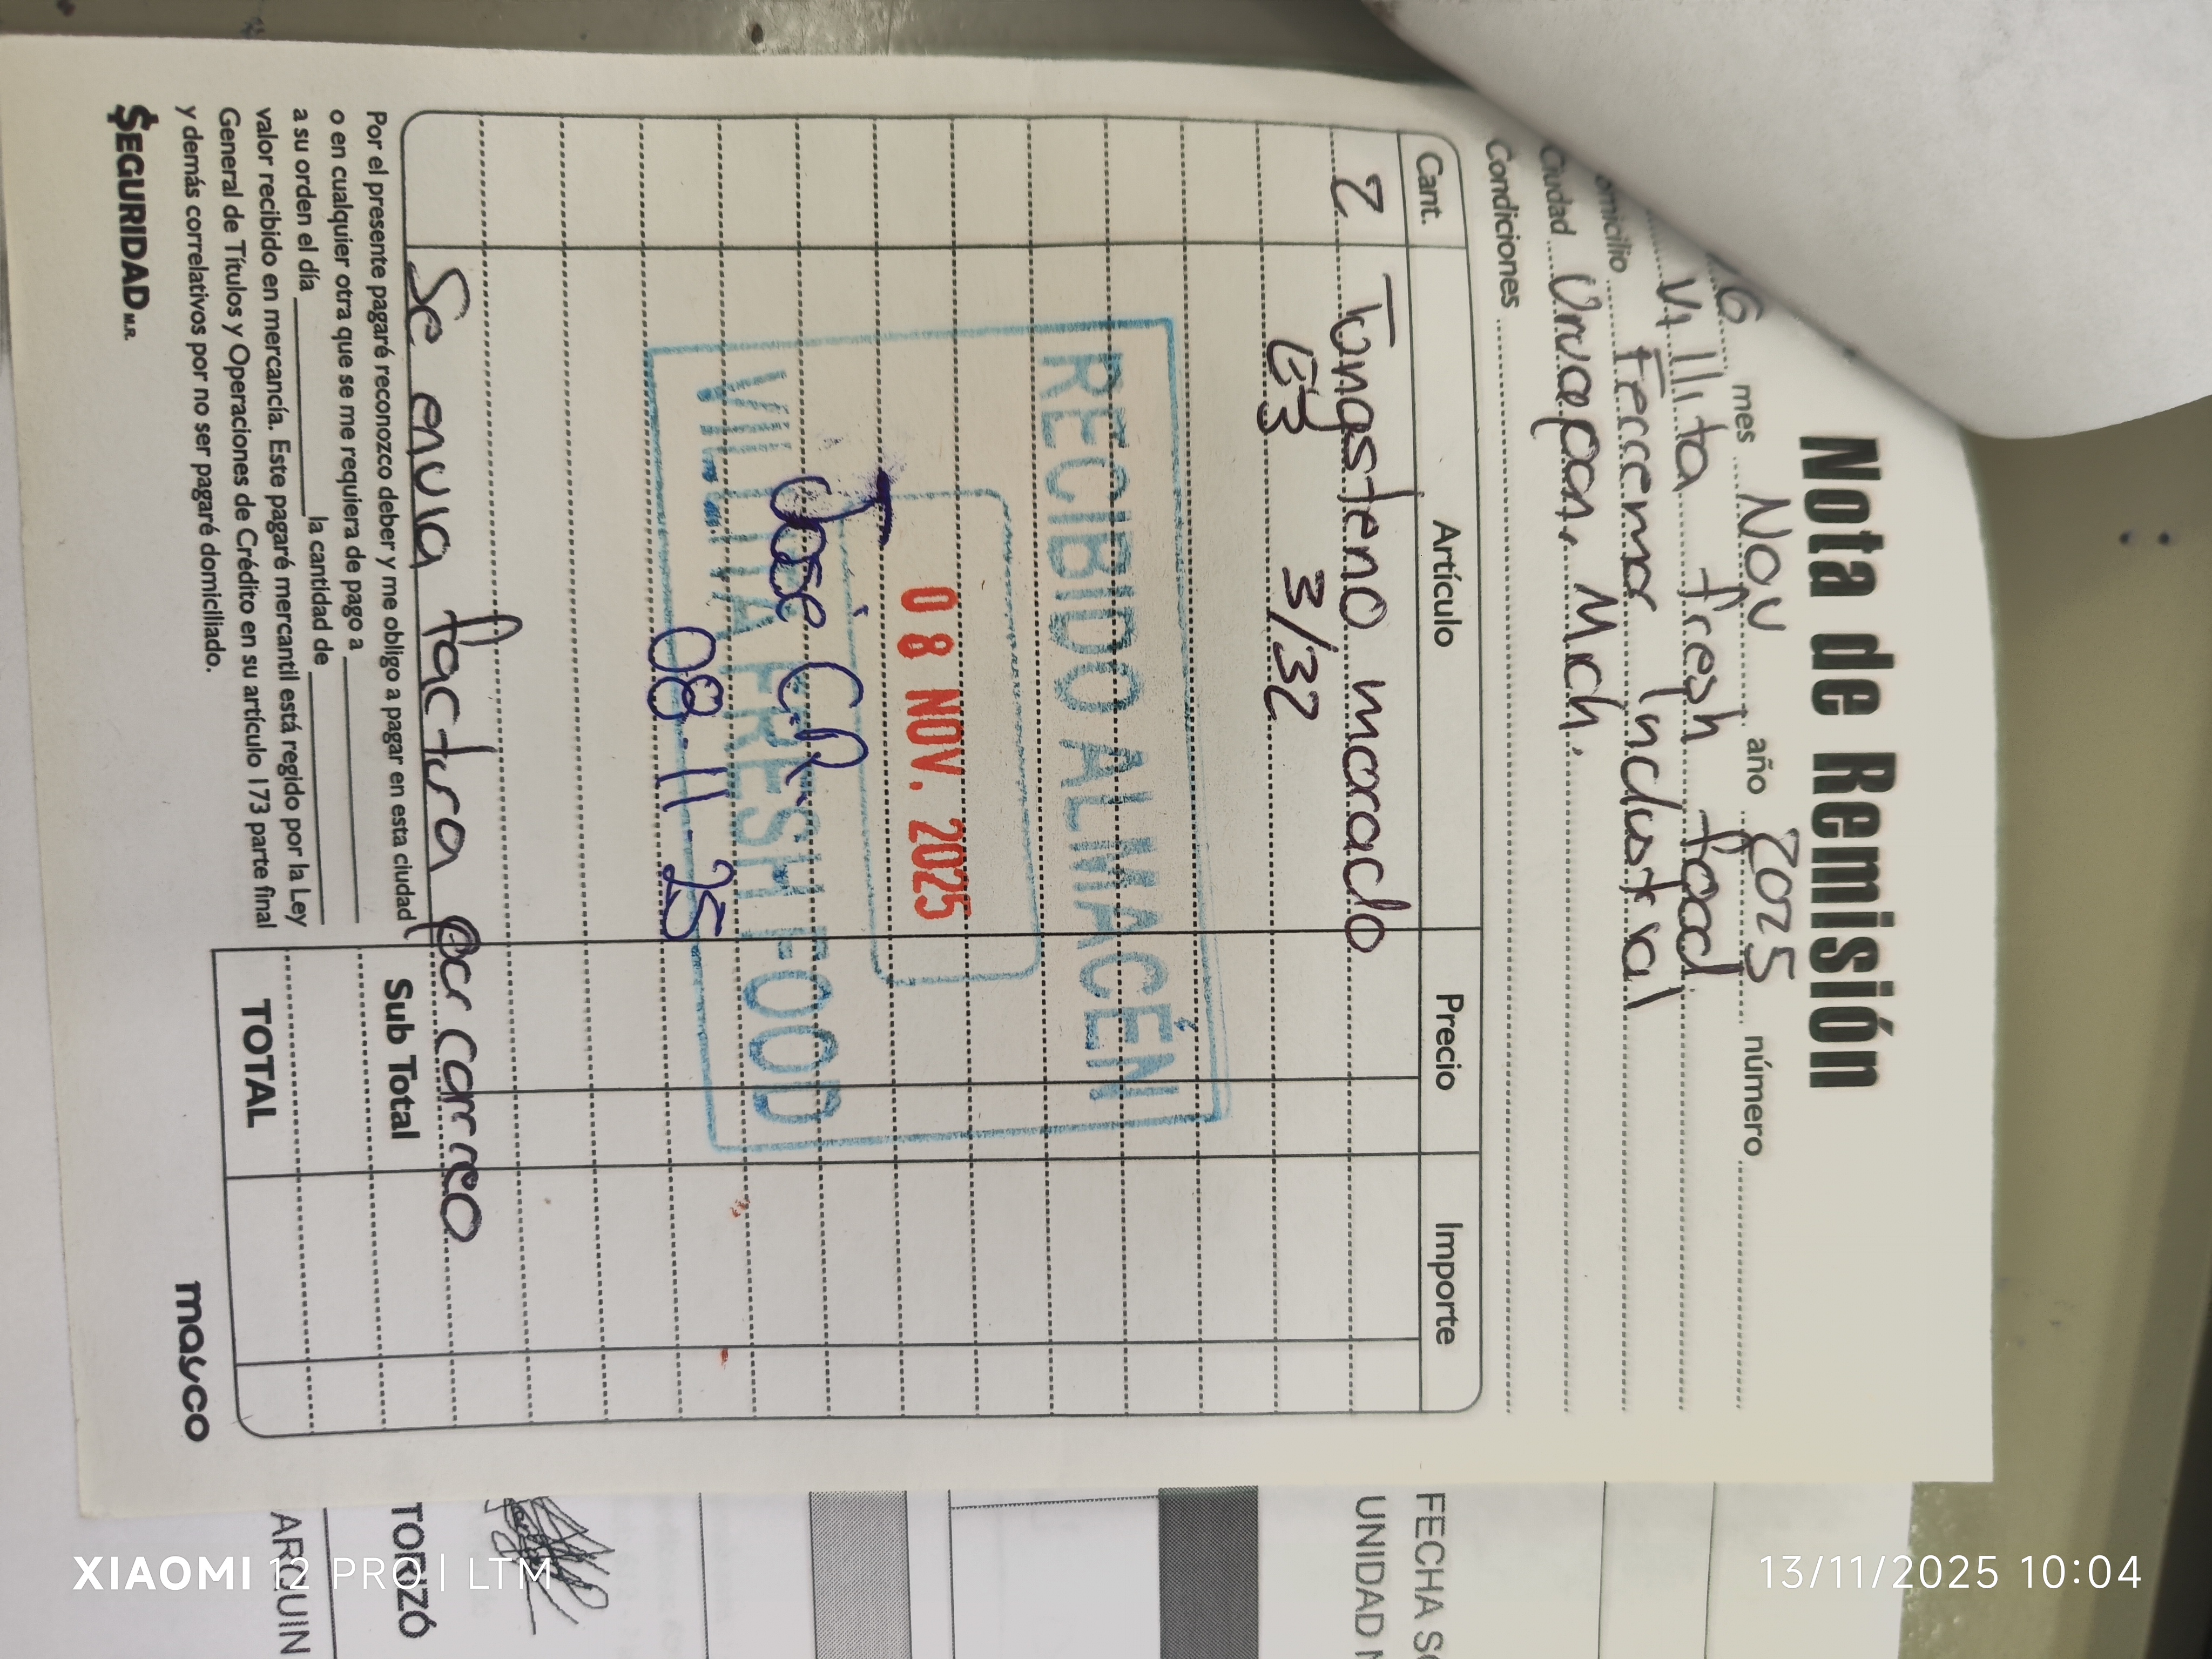 Nota de Remisión
06 mes Nov año 2025 número
Villita fresh food
omicilio Feccemar Industrial
Ciudad Uruapan, Mich.
Condiciones
Cant. Artículo Precio Importe
2 Tungsteno morado
E3 3/32
RECIBIDO ALMACÉN
08 NOV. 2025
José C.R.
VILLITA FRESH FOOD
08-11-25
Se envia factura por correo
Por el presente pagaré reconozco deber y me obligo a pagar en esta ciudad
o en cualquier otra que se me requiera de pago a
a su orden el día la cantidad de
valor recibido en mercancía. Este pagaré mercantil está regido por la Ley
General de Títulos y Operaciones de Crédito en su artículo 173 parte final
y demás correlativos por no ser pagaré domiciliado.
Sub Total
TOTAL
$EGURIDAD M.R.
masco
FECHA S
UNIDAD
TORIZÓ
ARQUIN
XIAOMI 12 PRO | LTM
13/11/2025 10:04